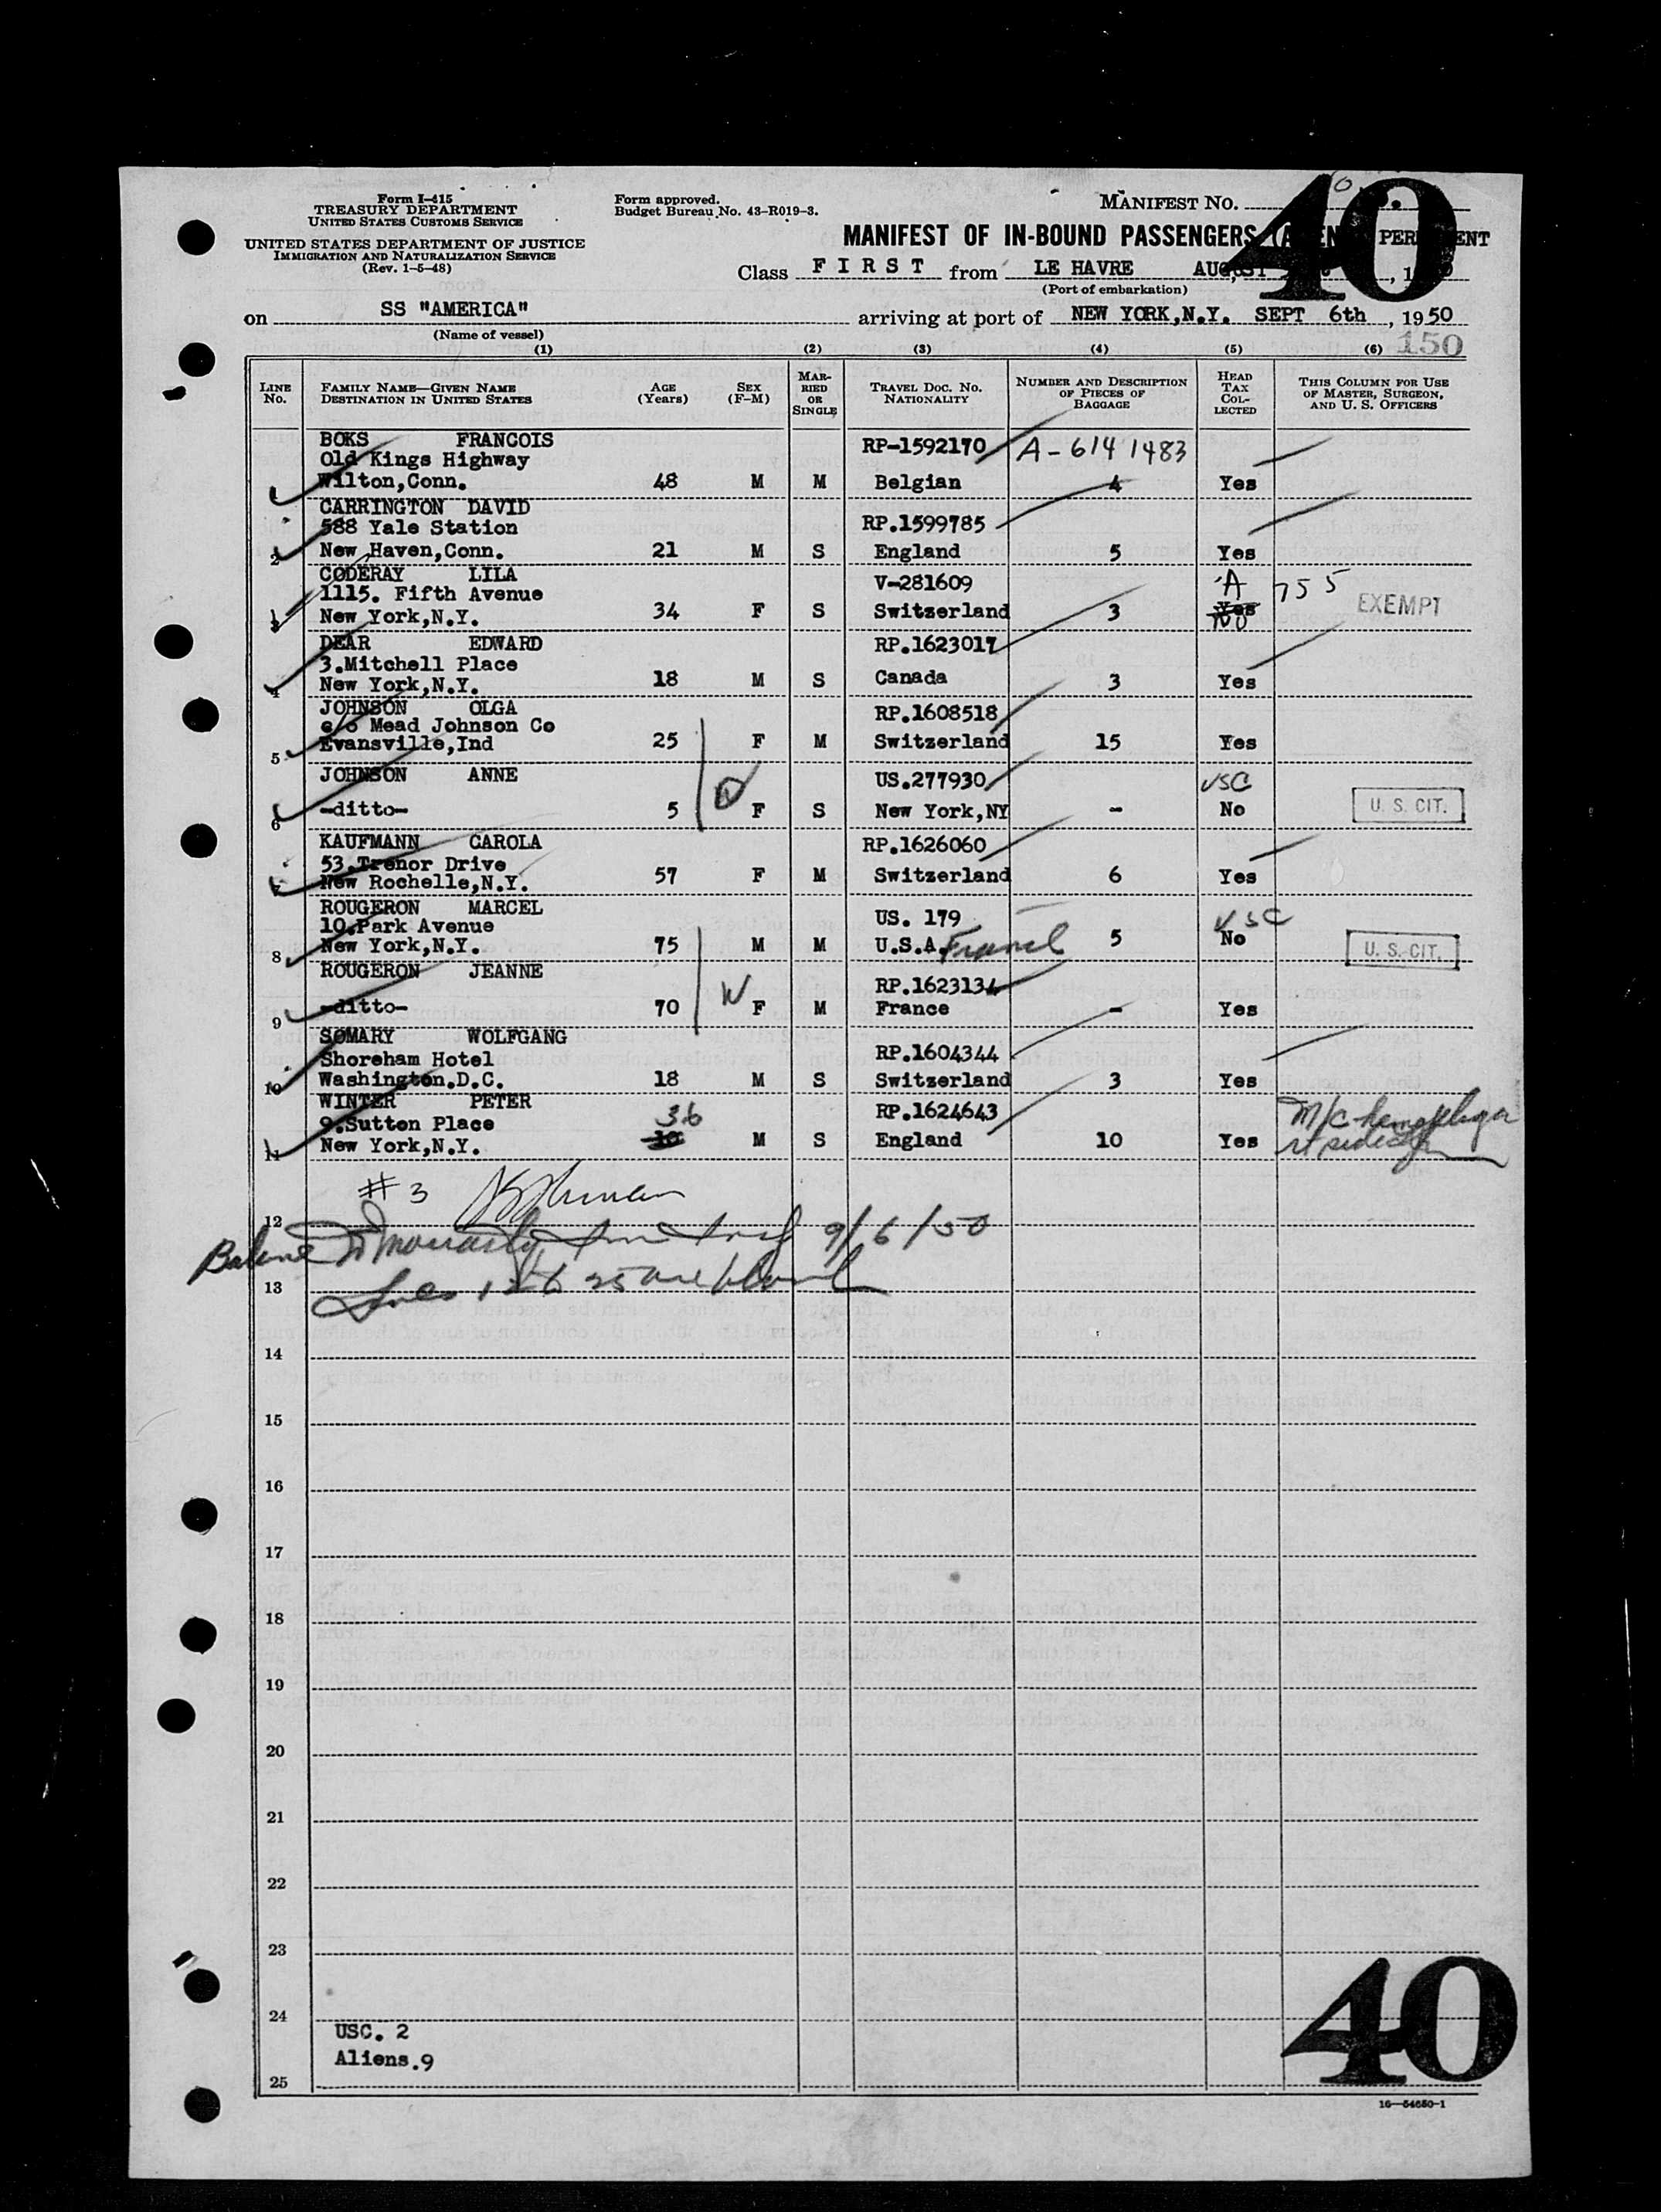 Form I-415
TREASURY DEPARTMENT
UNITED STATES CUSTOMS SERVICE
UNITED STATES DEPARTMENT OF JUSTICE
IMMIGRATION AND NATURALIZATION SERVICE
(Rev. 1-5-48)
Form approved.
Budget Bureau No. 43-R019-3.
MANIFEST NO.
40
MANIFEST OF IN-BOUND PASSENGERS
Class FIRST from LE HAVRE
(Port of embarkation)
on SS "AMERICA" arriving at port of NEW YORK,N.Y. SEPT 6th, 1950
(Name of vessel)
150
(1) (2) (3) (4) (5) (6)
LINE No. FAMILY NAME—GIVEN NAME DESTINATION IN UNITED STATES AGE (Years) SEX (F-M) MARRIED OR SINGLE TRAVEL DOC. No. NATIONALITY NUMBER AND DESCRIPTION OF PIECES OF BAGGAGE HEAD TAX COLLECTED THIS COLUMN FOR USE OF MASTER, SURGEON, AND U. S. OFFICERS
BOKS FRANCOIS RP-1592170 A-6141483
Old Kings Highway
1 Wilton,Conn. 48 M M Belgian 4 Yes
CARRINGTON DAVID
588 Yale Station RP.1599785
2 New Haven,Conn. 21 M S England 5 Yes
CODERAY LILA V-281609 A 755
1115. Fifth Avenue
3 New York,N.Y. 34 F S Switzerland 3 Yes No EXEMPT
DEAR EDWARD RP.1623017
3.Mitchell Place
4 New York,N.Y. 18 M S Canada 3 Yes
JOHNSON OLGA RP.1608518
c/o Mead Johnson Co
5 Evansville,Ind 25 F M Switzerland 15 Yes
JOHNSON ANNE US.277930 USC
6 -ditto- 5 F S New York,NY - No U. S. CIT.
KAUFMANN CAROLA RP.1626060
53.Trenor Drive
7 New Rochelle,N.Y. 57 F M Switzerland 6 Yes
ROUGERON MARCEL US. 179 USC
10.Park Avenue
8 New York,N.Y. 75 M M U.S.A. France 5 No U. S. CIT.
ROUGERON JEANNE RP.1623134
9 -ditto- 70 F M France - Yes
SOMARY WOLFGANG
Shoreham Hotel RP.1604344
10 Washington.D.C. 18 M S Switzerland 3 Yes
WINTER PETER RP.1624643
9.Sutton Place 36
11 New York,N.Y. M S England 10 Yes M/C
#3
12 9/6/50
13
14
15
16
17
18
19
20
21
22
23
24
USC. 2
Aliens.9
25
40
16—54650-1